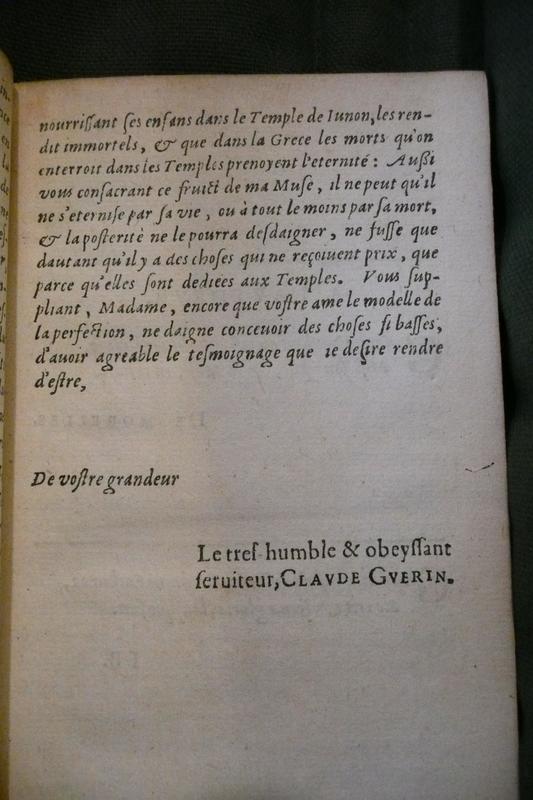 nourriſſant ſes enfans dans le Temple de Iunon, les ren-
dit immortels, & que dans la Grece les morts qu'on
enterroit dans les Temples prenoyent l'eternité: Außi
vous conſacrant ce fruict de ma Muſe, il ne peut qu'il
ne s'eterniſe par ſa vie, ou à tout le moins par ſa mort,
& la poſterité ne le pourra deſdaigner, ne fuſſe que
dautant qu'il y a des choſes qui ne reçoiuent prix, que
parce qu'elles ſont dediées aux Temples. Vous ſup-
pliant, Madame, encore que voſtre ame le modelle de
la perfection, ne daigne conceuoir des choſes ſi baſſes,
d'auoir agreable le teſmoignage que ie deſire rendre
d'eſtre,
De voſtre grandeur
Le treſ-humble & obeyſſant
ſeruiteur, CLAVDE GVERIN.